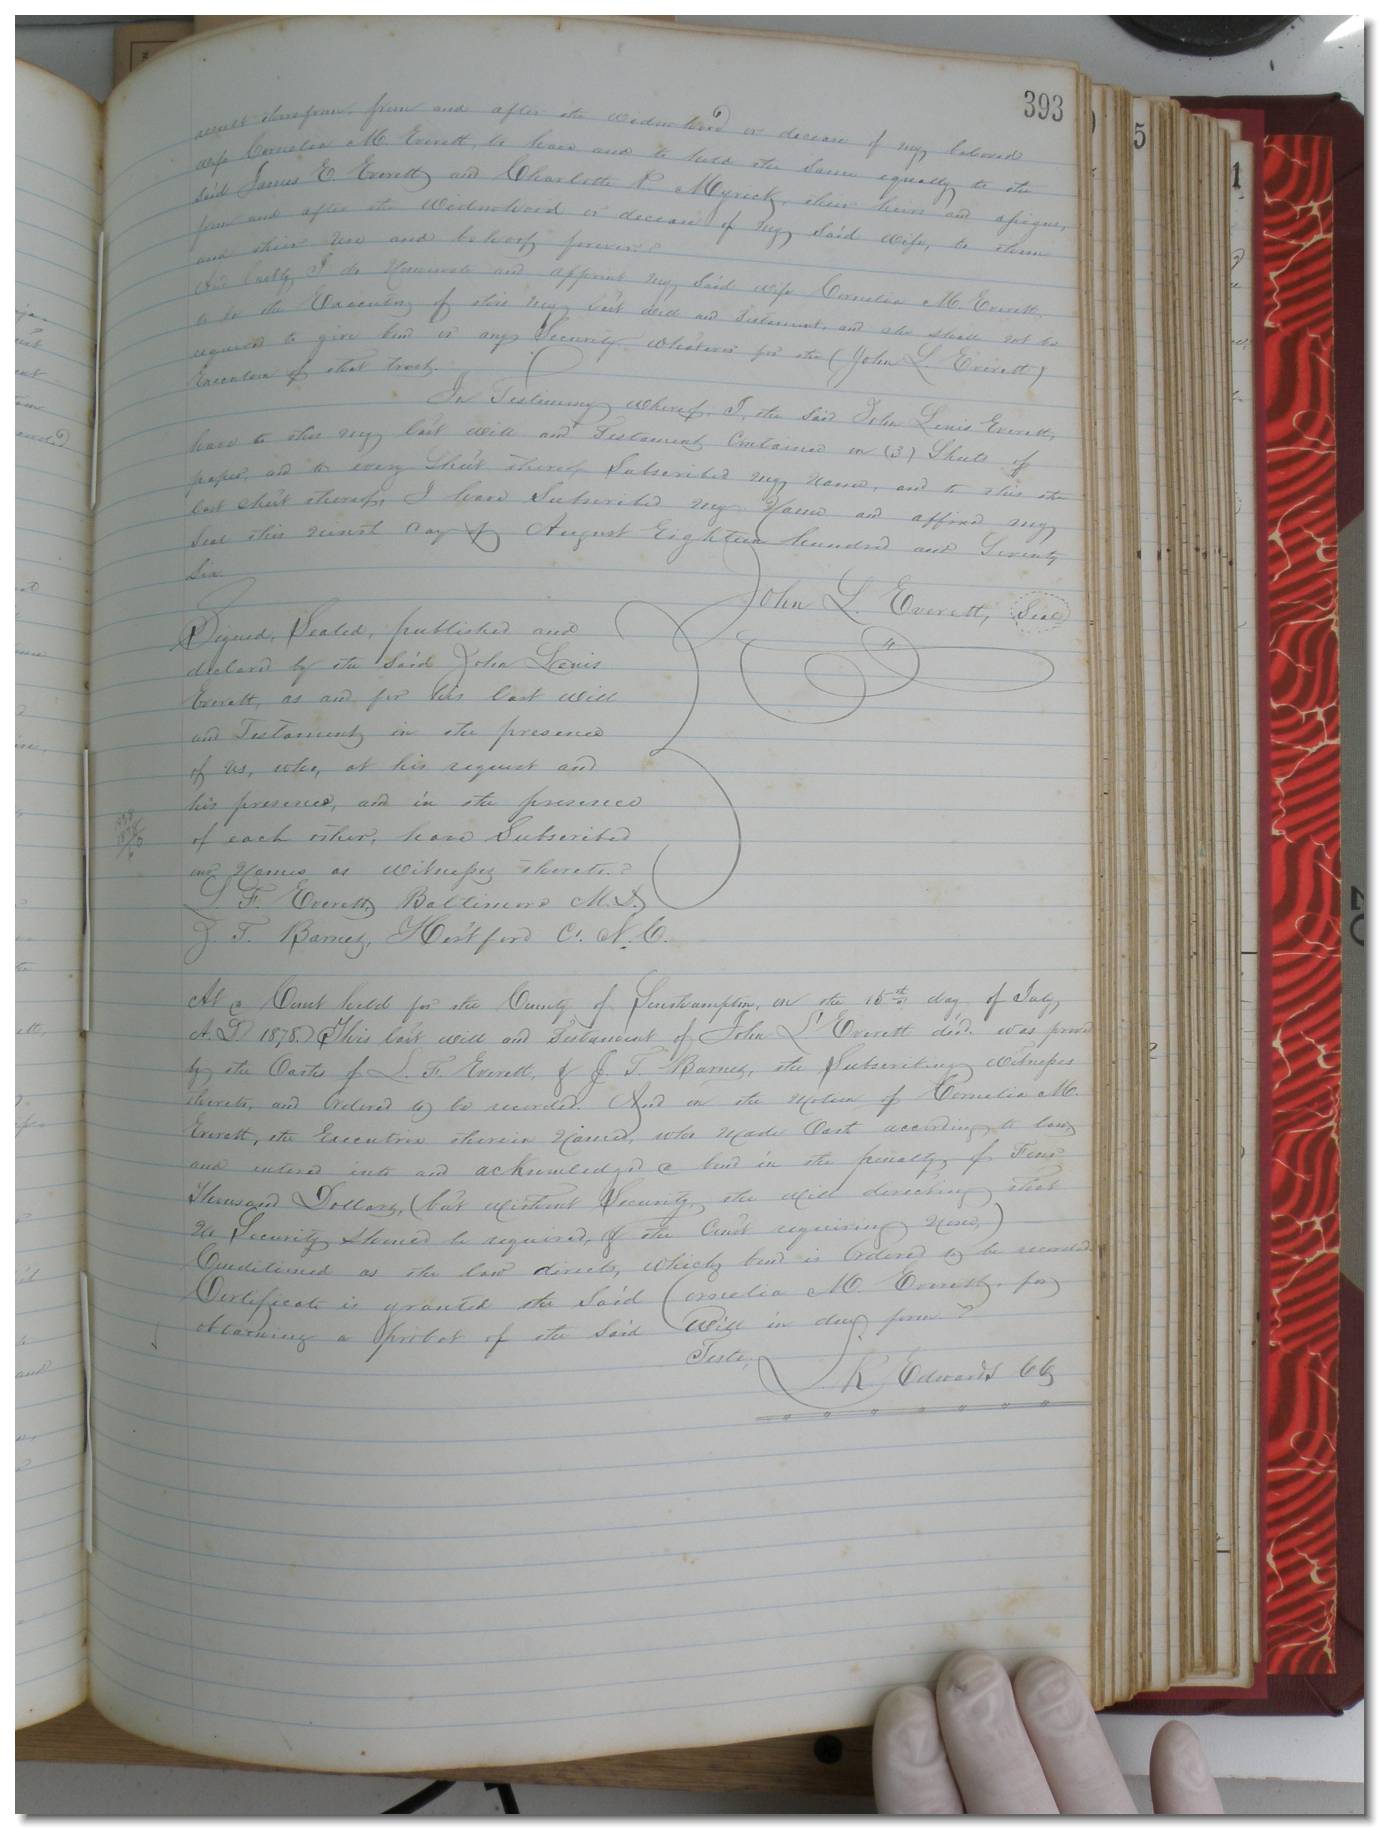 393
therefrom, from and after the widowhood or decease of my beloved
wife Cornelia M. Everett, to have and to hold the same equally to the
said James E. Everett, and Charlotte P. Myrick, their heirs and assigns,
from and after the widowhood or decease of my said wife, to them
and their use and behoof forever.
And lastly, I do nominate and appoint my said wife Cornelia M. Everett,
to be the Executrix of this my last will and testament, and she shall not be
required to give bond or any Security whatever for the (John L. Everett)
Execution of that trust.
In Testimony whereof, I, the said John Lewis Everett,
have to this my last will and Testament, Contained in (3) Sheets of
paper, and to every Sheet thereof Subscribed my name, and to this the
last sheet thereof, I have Subscribed my Name and affixed my
Seal this day of August Eighteen hundred and Seventy
Six.
John L. Everett, Seal
Signed, Sealed, published and
declared by the Said John Lewis
Everett, as and for his last will
and Testament, in the presence
of us, who, at his request and
his presence, and in the presence
of each other, have Subscribed
our Names as witnesses thereto.
L. F. Everett, Baltimore M.D.
J. T. Barnes, Hertford Co. N.C.
At a Court held for the County of Southampton, on the 15th day of July,
A.D. 1878. This last will and testament of John L. Everett decd. was proved
by the Oaths of L. F. Everett, & J. T. Barnes, the Subscribing witnesses
thereto, and Ordered to be recorded. And on the motion of Cornelia M.
Everett, the Executrix therein Named, who made Oath according to law,
and entered into and acknowledged a bond in the penalty of Four
Thousand Dollars, (but without Security, the will directing that
no Security should be required, & the Court requiring None,)
Conditioned as the law directs, which bond is Ordered to be recorded
Certificate is granted the Said Cornelia M. Everett, for
obtaining a probat of the Said Will in due form.
Teste,
L. R. Edwards CC